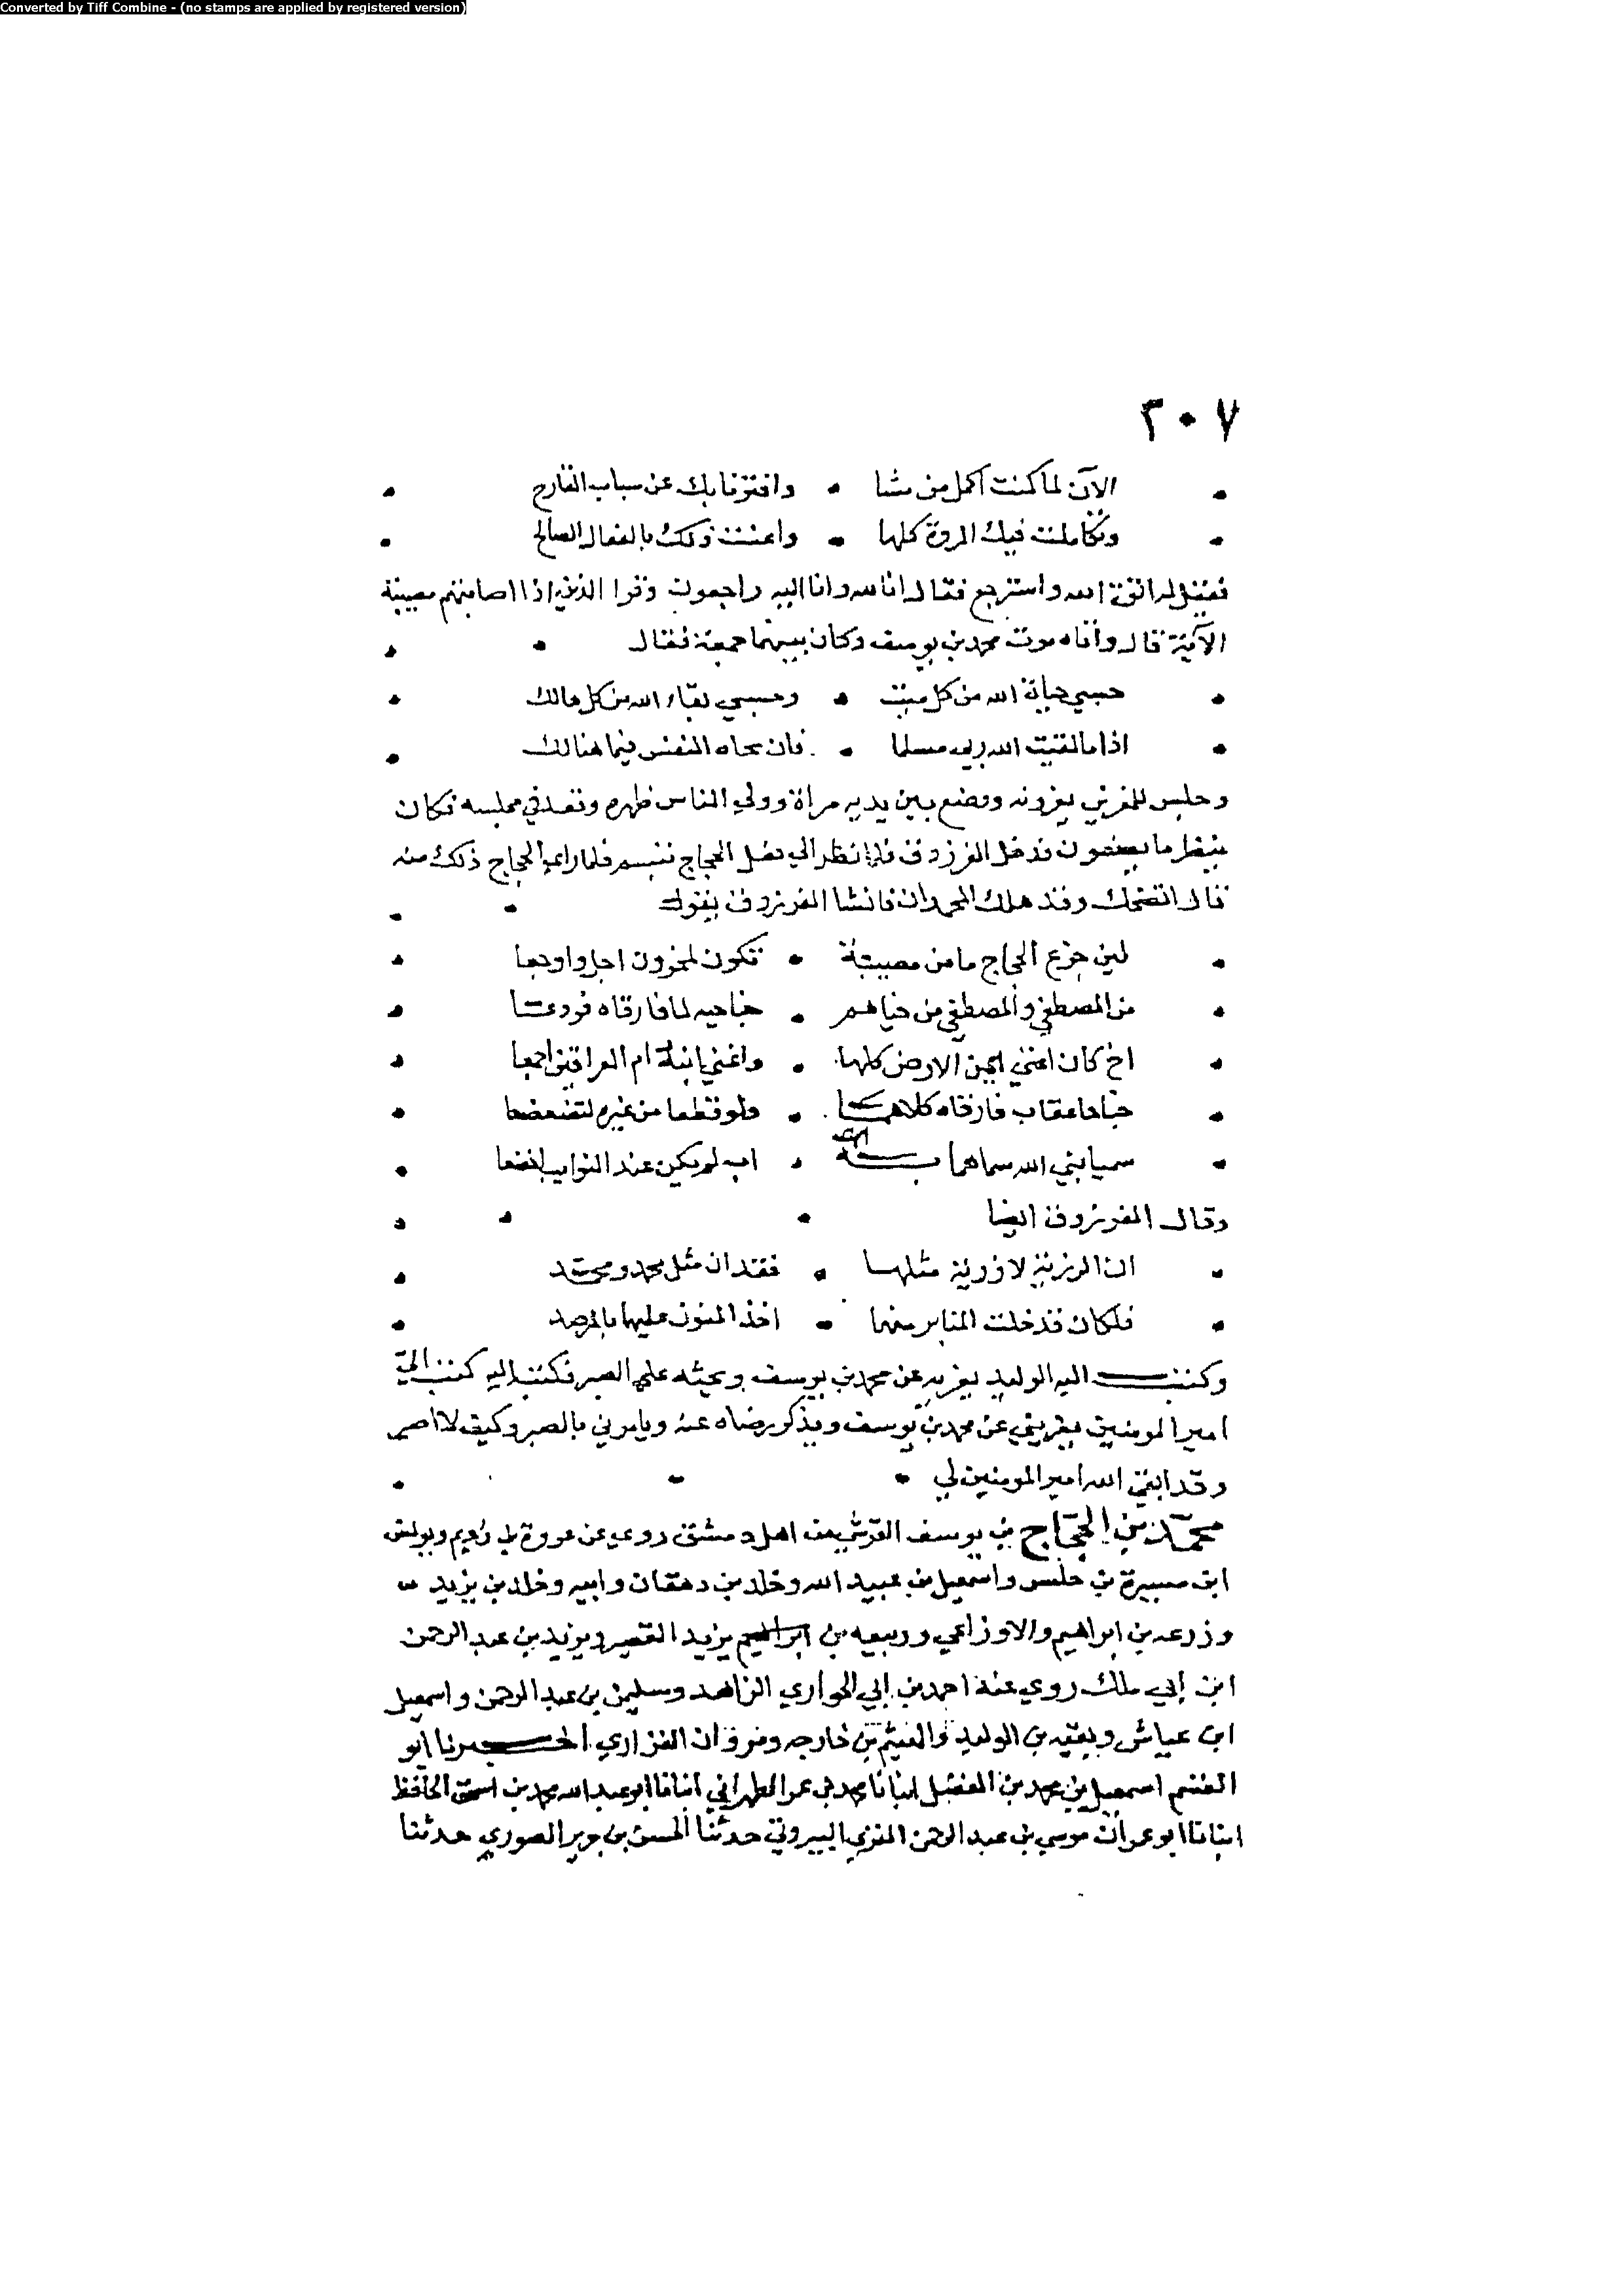 Converted by Tiff Combine - (no stamps are applied by registered version)
٣٠٧
الآن لما كنت اكمل من مشا • وافترنا بك عن سباب القارح
وتكاملت فيك المروة كلها • واعنت ذلك بالفعال الصالح
فقيل له اتق الله واسترجع فقال انا لله وانا اليه راجعون وقرا الذين اذا اصابتهم مصيبة
الآية قال واتاه موت محمد بن يوسف وكان بينهما جمعة فقال
حسبي حياة الله من كل ميت • وحسبي بقاء الله من كل هالك
اذا ما لقيت الله ربي مسلما • فان نجاة النفس فيما هنالك
وجلس للمعزين يعزونه ووضع بين يديه مراة وولي الناس ظهره وقعد في مجلسه فكان
ينظر ما يصنعون فدخل الفرزدق فلما نظر الي فعل الحجاج تبسم فلما راي الحجاج ذلك منه
قال اتضحك وقد هلك المحمدان فانشا الفرزدق يقول
لين جزع الحجاج ما من مصيبة • تكون لمحزون اجل واوجعا
من المصطفي والمصطفي من خيارهم • جناحيه لما فارقاه فودعا
اخ كان اغني ايمن الارض كلها • واغني ابنه ام العراقين اجمعا
جناحا عقاب فارقاه كلاهما • ولو قطعا من غيره لتضعضعا
سميا نبي الله سماهما به • اب لم يكن عند النوايب اخضعا
وقال الفرزدق ايضا
ان الرزية لا رزية مثلها • فقدان مثل محمد ومحمد
ملكان قد خلت المنابر منهما • اخذ المنون عليهما بالمرصد
وكتب اليه الوليد يعزيه عن محمد بن يوسف ويحثه علي الصبر فكتب اليه كتب الي
امير المومنين يعزيني عن محمد بن يوسف ويذكر رضاه عنه ويامرني بالصبر وكيف لا اصبر
وقد ابقي الله امير المومنين لي
محمد بن الحجاج بن يوسف القرشي من اهل دمشق روي عن عروة بن رويم ويونس
ابن ميسرة بن حلبس واسمعيل بن عبيد الله وخلد بن دهقان وابيه وخلد بن يزيد
وزرعه بن ابراهيم والاوزاعي وربيعه بن ابراهيم يزيد القصير ويزيد بن عبد الرحمن
ابن ابي ملك روي عنه احمد بن ابي الحواري الزاهد وسليمن بن عبد الرحمن واسمعيل
ابن عياش وبقيه بن الوليد والهيثم بن خارجه ومروان الفزاري اخبرنا ابو
القسم اسمعيل بن محمد بن الفضل انبانا محمد بن عمر الطهراني انبانا ابو عبد الله محمد بن اسحق الحافظ
انبانا ابو عمران موسي بن عبد الرحمن المقري البيروتي حدثنا الحسن بن جرير الصوري حدثنا